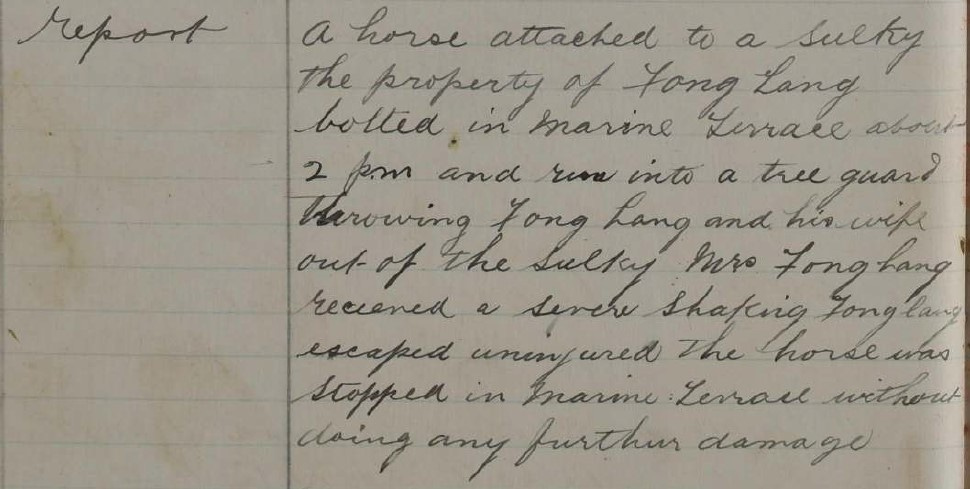 report
A horse attached to a sulky
the property of Fong Lang
bolted in Marine Terrace about
2 pm and run into a tree guard
throwing Fong Lang and his wife
out of the sulky Mrs Fong Lang
recieved a severe shaking Fong Lang
escaped uninjured the horse was
stopped in Marine Terrace without
doing any furthur damage